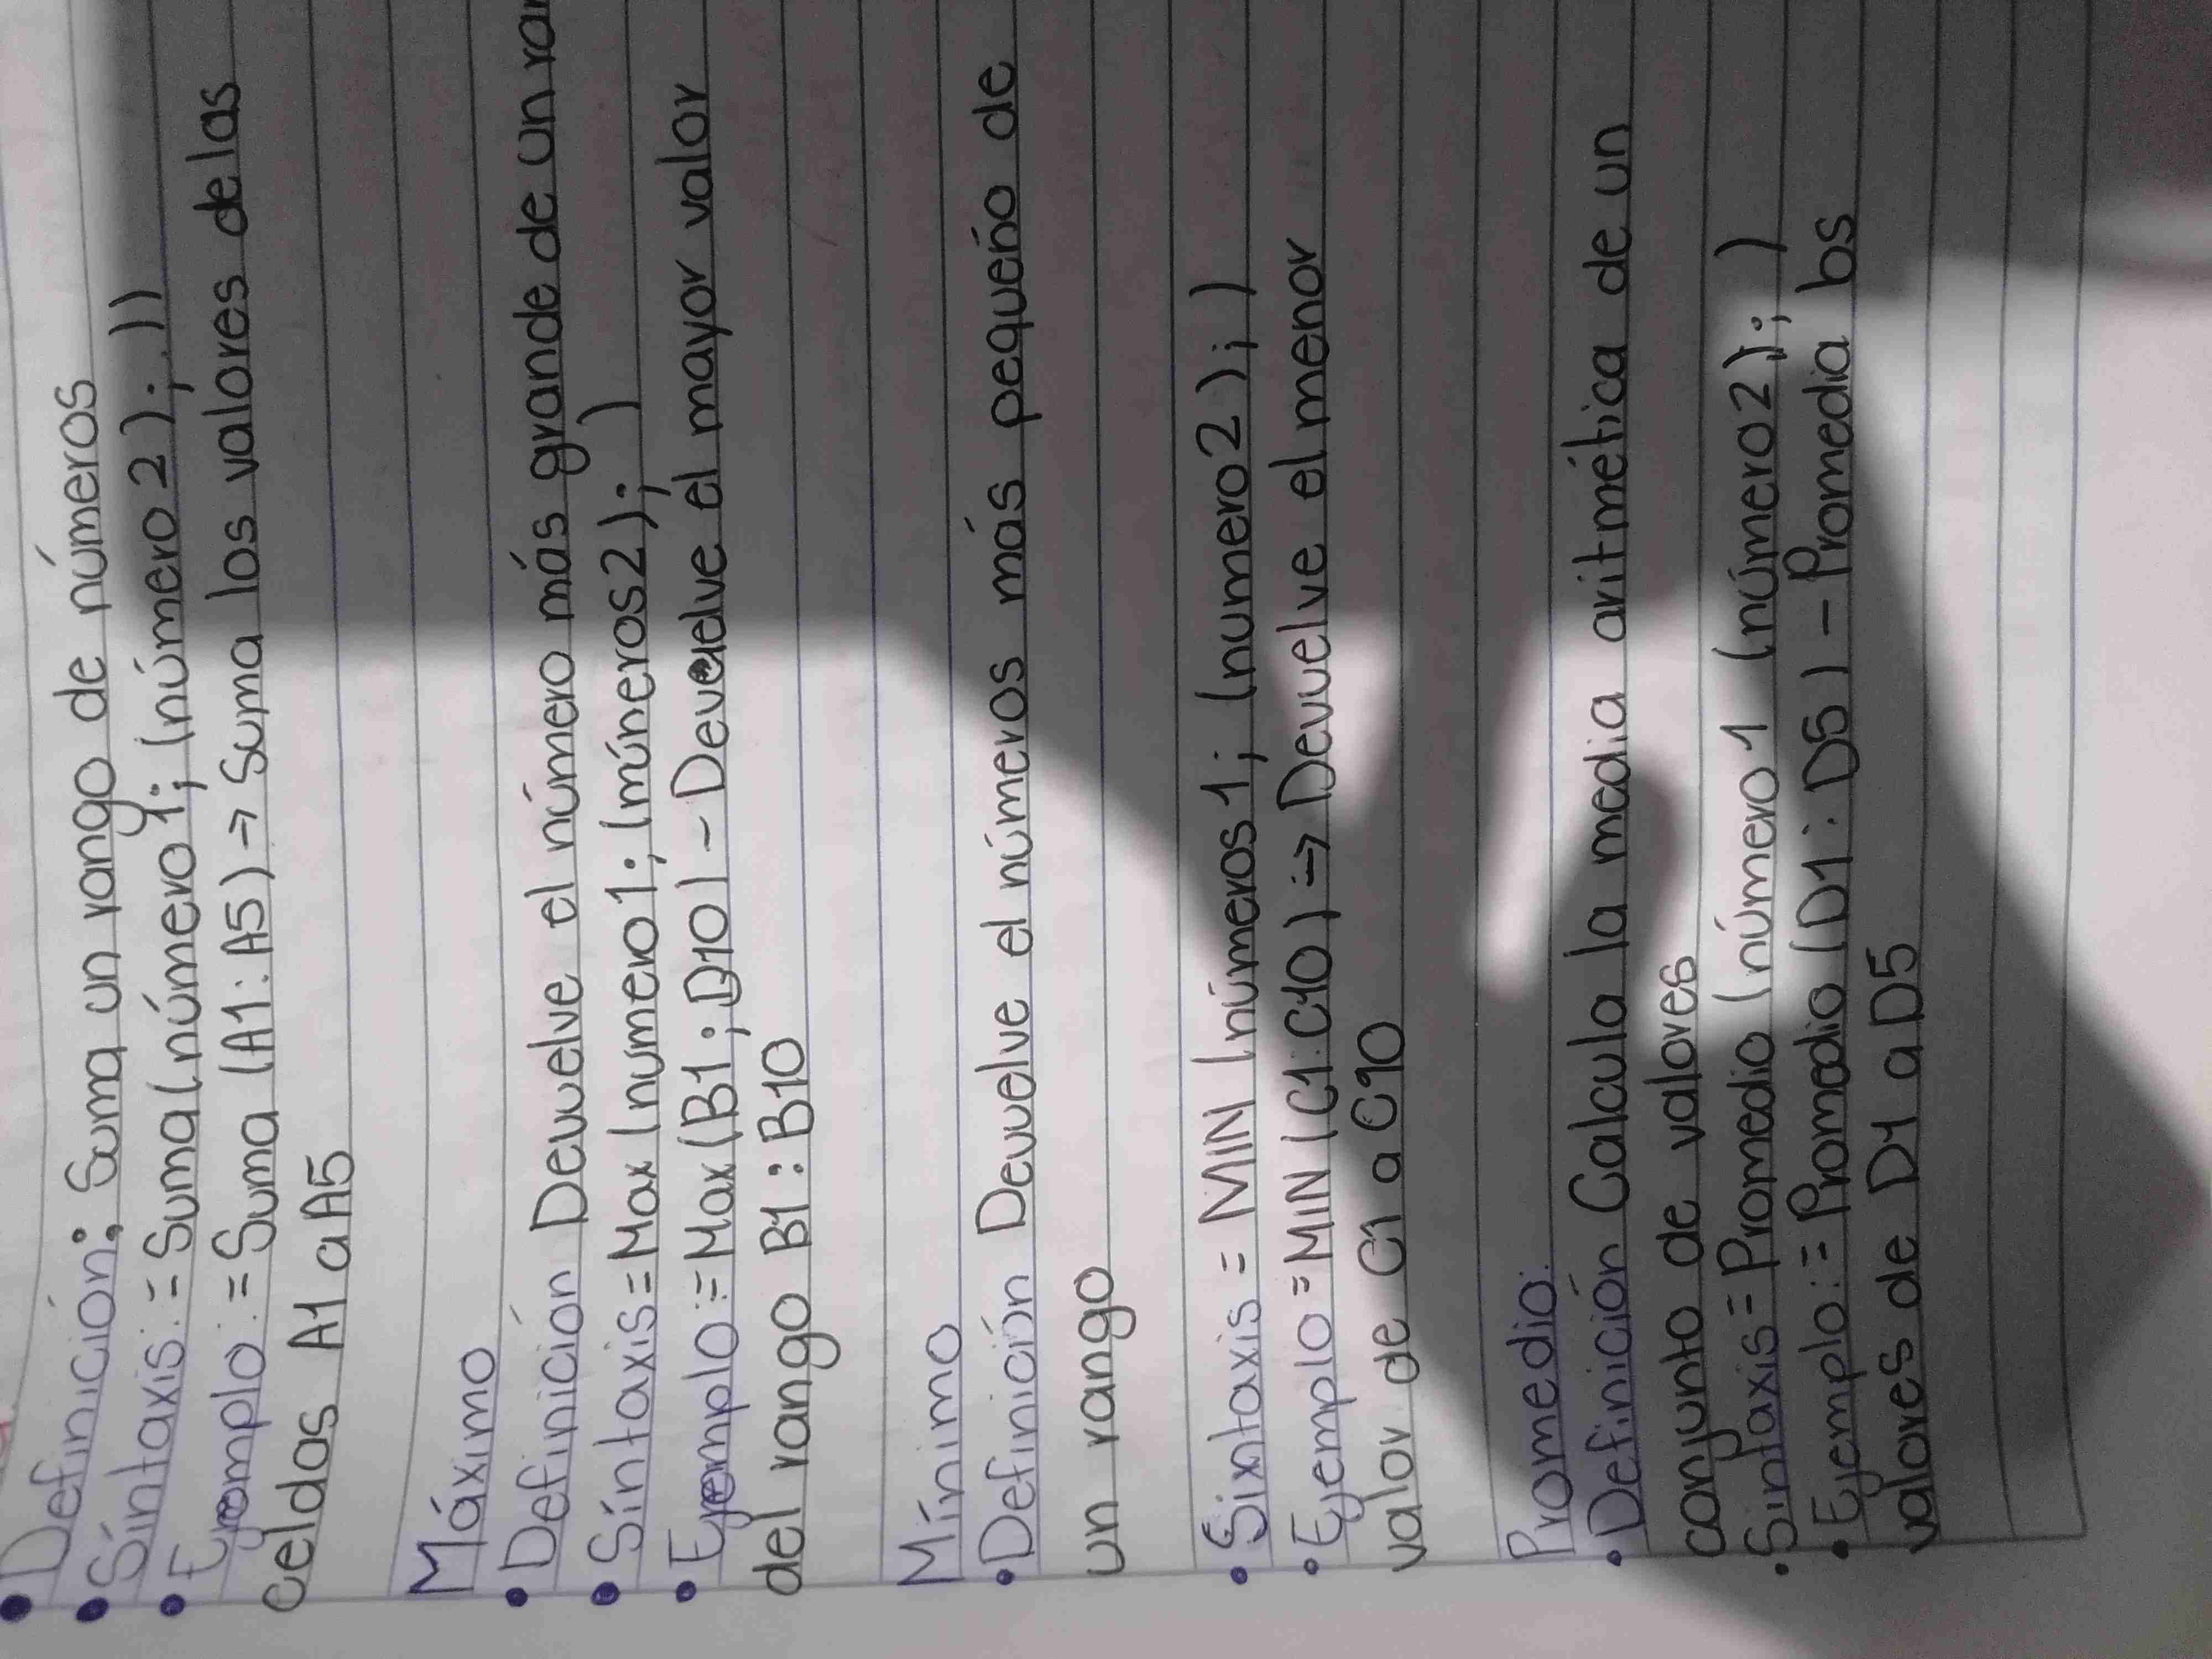 • Definición: Suma un rango de números
• Síntaxis: =Suma(número1; (número2);))
• Ejemplo: =Suma (A1:A5) → Suma los valores de las
celdas A1 a A5
Máximo
• Definición Devuelve el número más grande de un
• Síntaxis=Max(numero1; (múneros2); )
• Ejemplo:=Max(B1;D10)-Devuelve el mayor valor
del rango B1:B10
Mínimo
• Definición Devuelve el números más pequeño de
un rango
• Sixtaxis = MIN (números1; (numero2);)
• Ejemplo=MIN(C1:C10)→Devuelve el menor
valor de C1 a C10
Promedio:
• Definición Calcula la media aritmética de un
conjunto de valores
• Sintaxis=Promedio (número1 (número2); )
• Ejemplo:=Promedio(D1:D5)-Promedia los
valores de D1 a D5